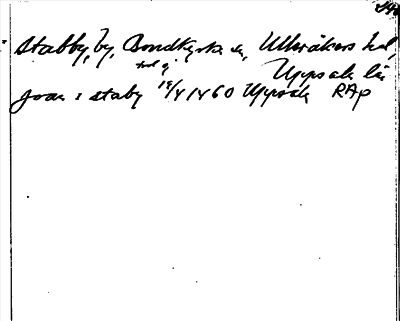 Stabby, by, Bondkyrka sn, Ulleråkers hd,
Uppsala län
joan i staby 18/4 1460 Uppsala RAp